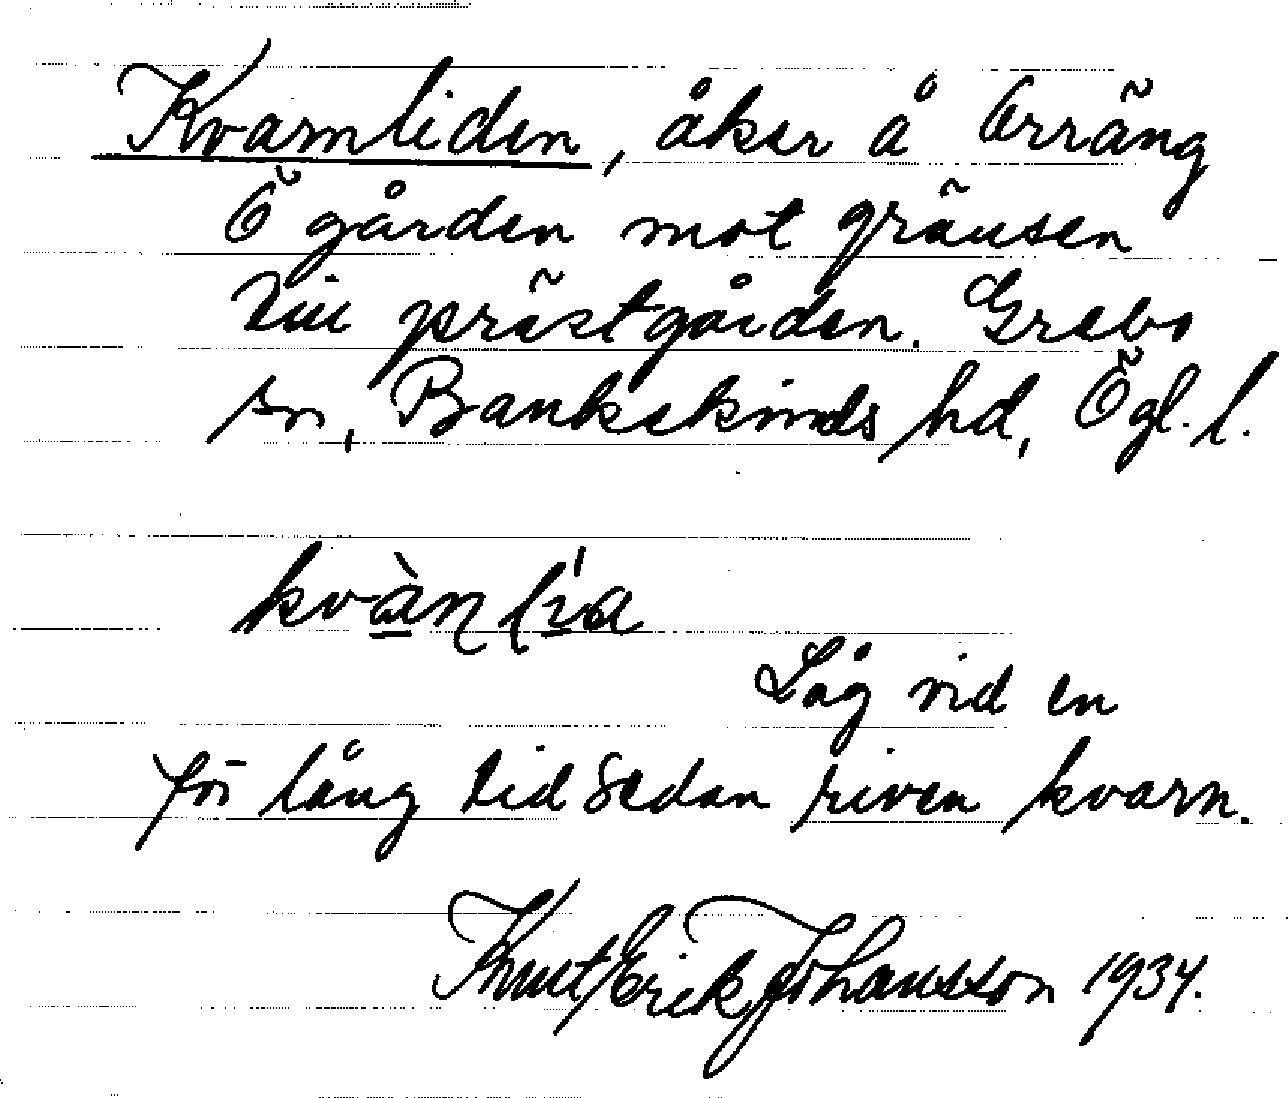 Kvarnliden, åker å Erräng
Ö gården mot gränsen
till prästgården. Grebo
sn, Bankekinds hd, Ögl. l.
Låg vid en
för lång tid sedan riven kvarn.
Knut Erick Johansson 1934.